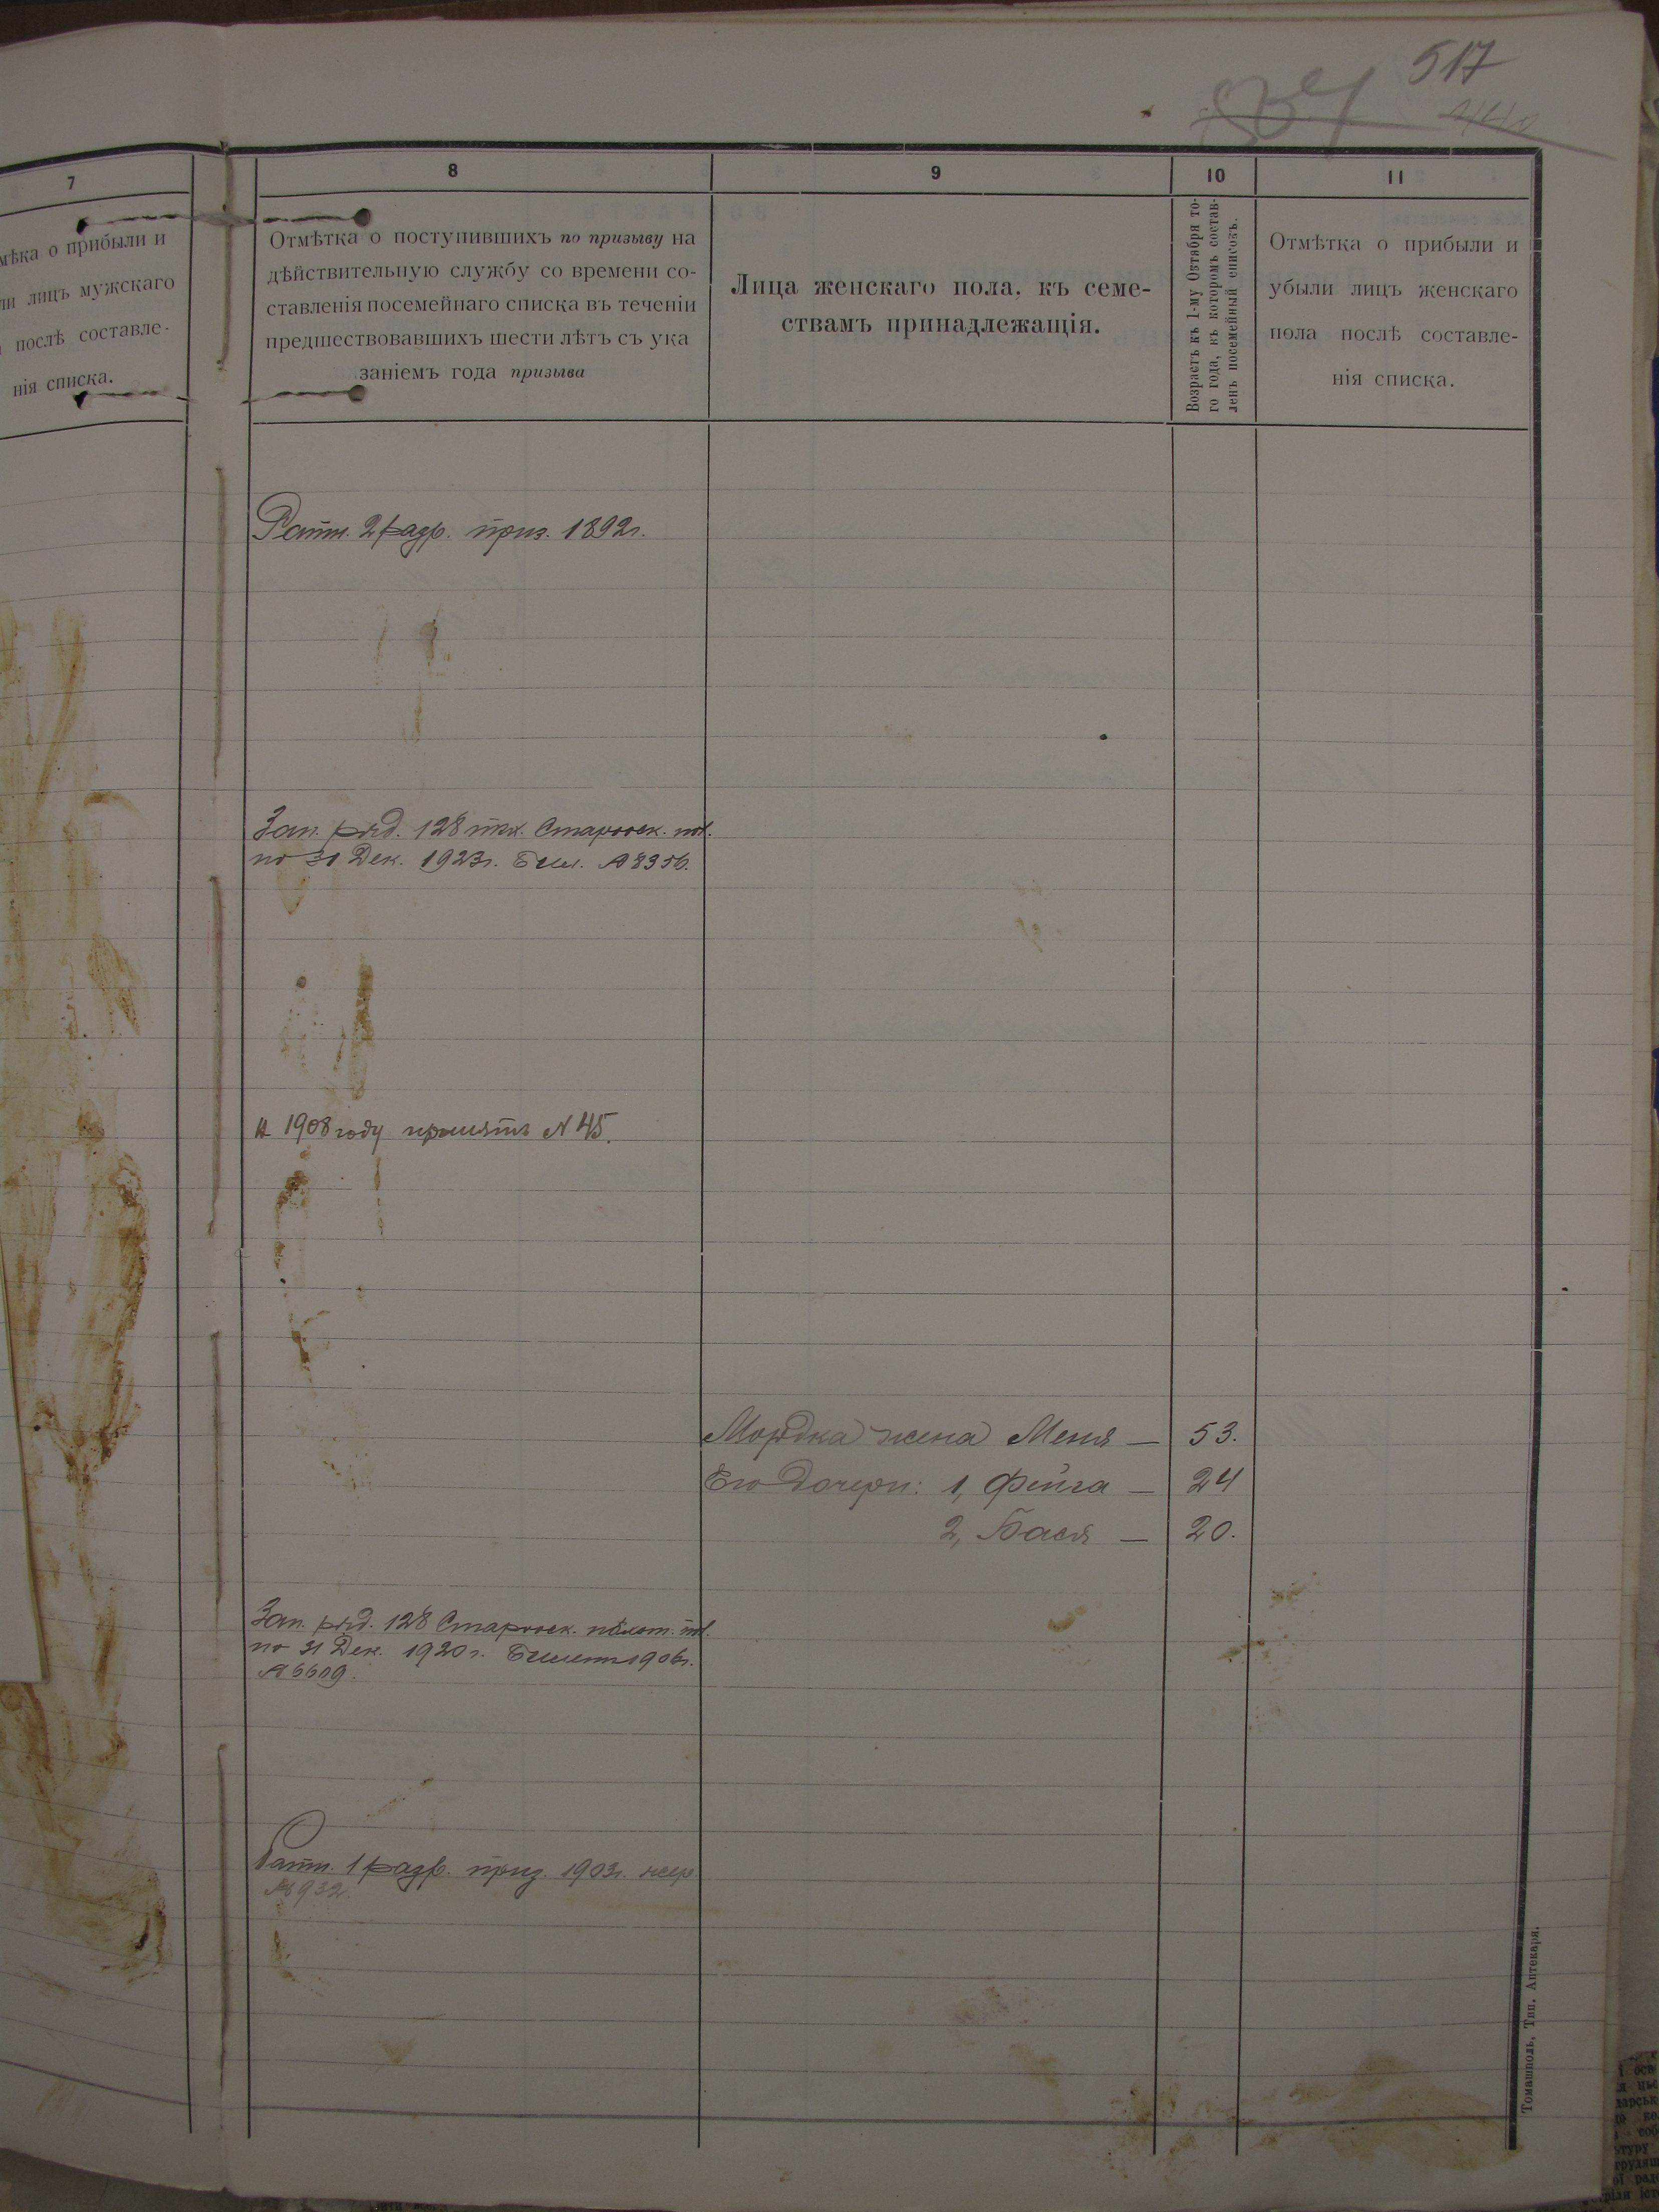 517
7
8
9
10
11
мѣка о прибыли и
ли лицъ мужскаго
послѣ составле-
нія списка.
Отмѣтка о поступившихъ по призыву на
дѣйствительную службу со времени со-
ставленія посемейнаго списка въ теченіи
предшествовавшихъ шести лѣтъ съ ука
заніемъ года призыва
Лица женскаго пола, къ семе-
ствамъ принадлежащія.
Возрастъ къ 1-му Октября то-
го года, къ которомъ состав-
ленъ посемейный списокъ.
Отмѣтка о прибыли и
убыли лицъ женскаго
пола послѣ составле-
нія списка.
Ратн. 2 разр. приз. 1892г.
Зап. ряд. 128 пѣх. Староск. пол.
по 31 Дек. 1923г. Бил. №8356.
1908 году принятъ N 45.
Мордка жена Меня — 53.
Его дочери: 1, Фейга — 24
2, Бася — 20.
Зап. ряд. 128 Староск. пол.
по 31 Дек. 1920г. Билетъ 1906г.
№ 6609.
Ратн. 1 разр. приз. 1903г. жер.
№ 932.
Томашполь, Тип. Аптекаря.